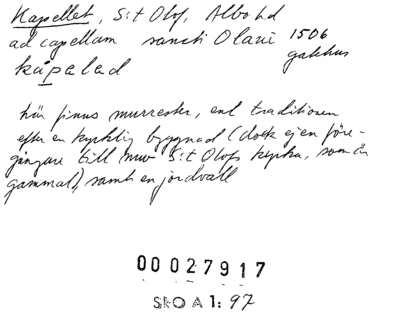 Kapellet, S:t Olof, Albo hd
ad capellam sancti Olaui 1506
gakhus
kápelad
här finns murrester, enl traditionen
efter en kyrklig byggnad (dock ej en före-
gångare till nuv S:t Olofs kyrka, som är
gammal), samt en jordvall
00027917
SkO A 1: 97